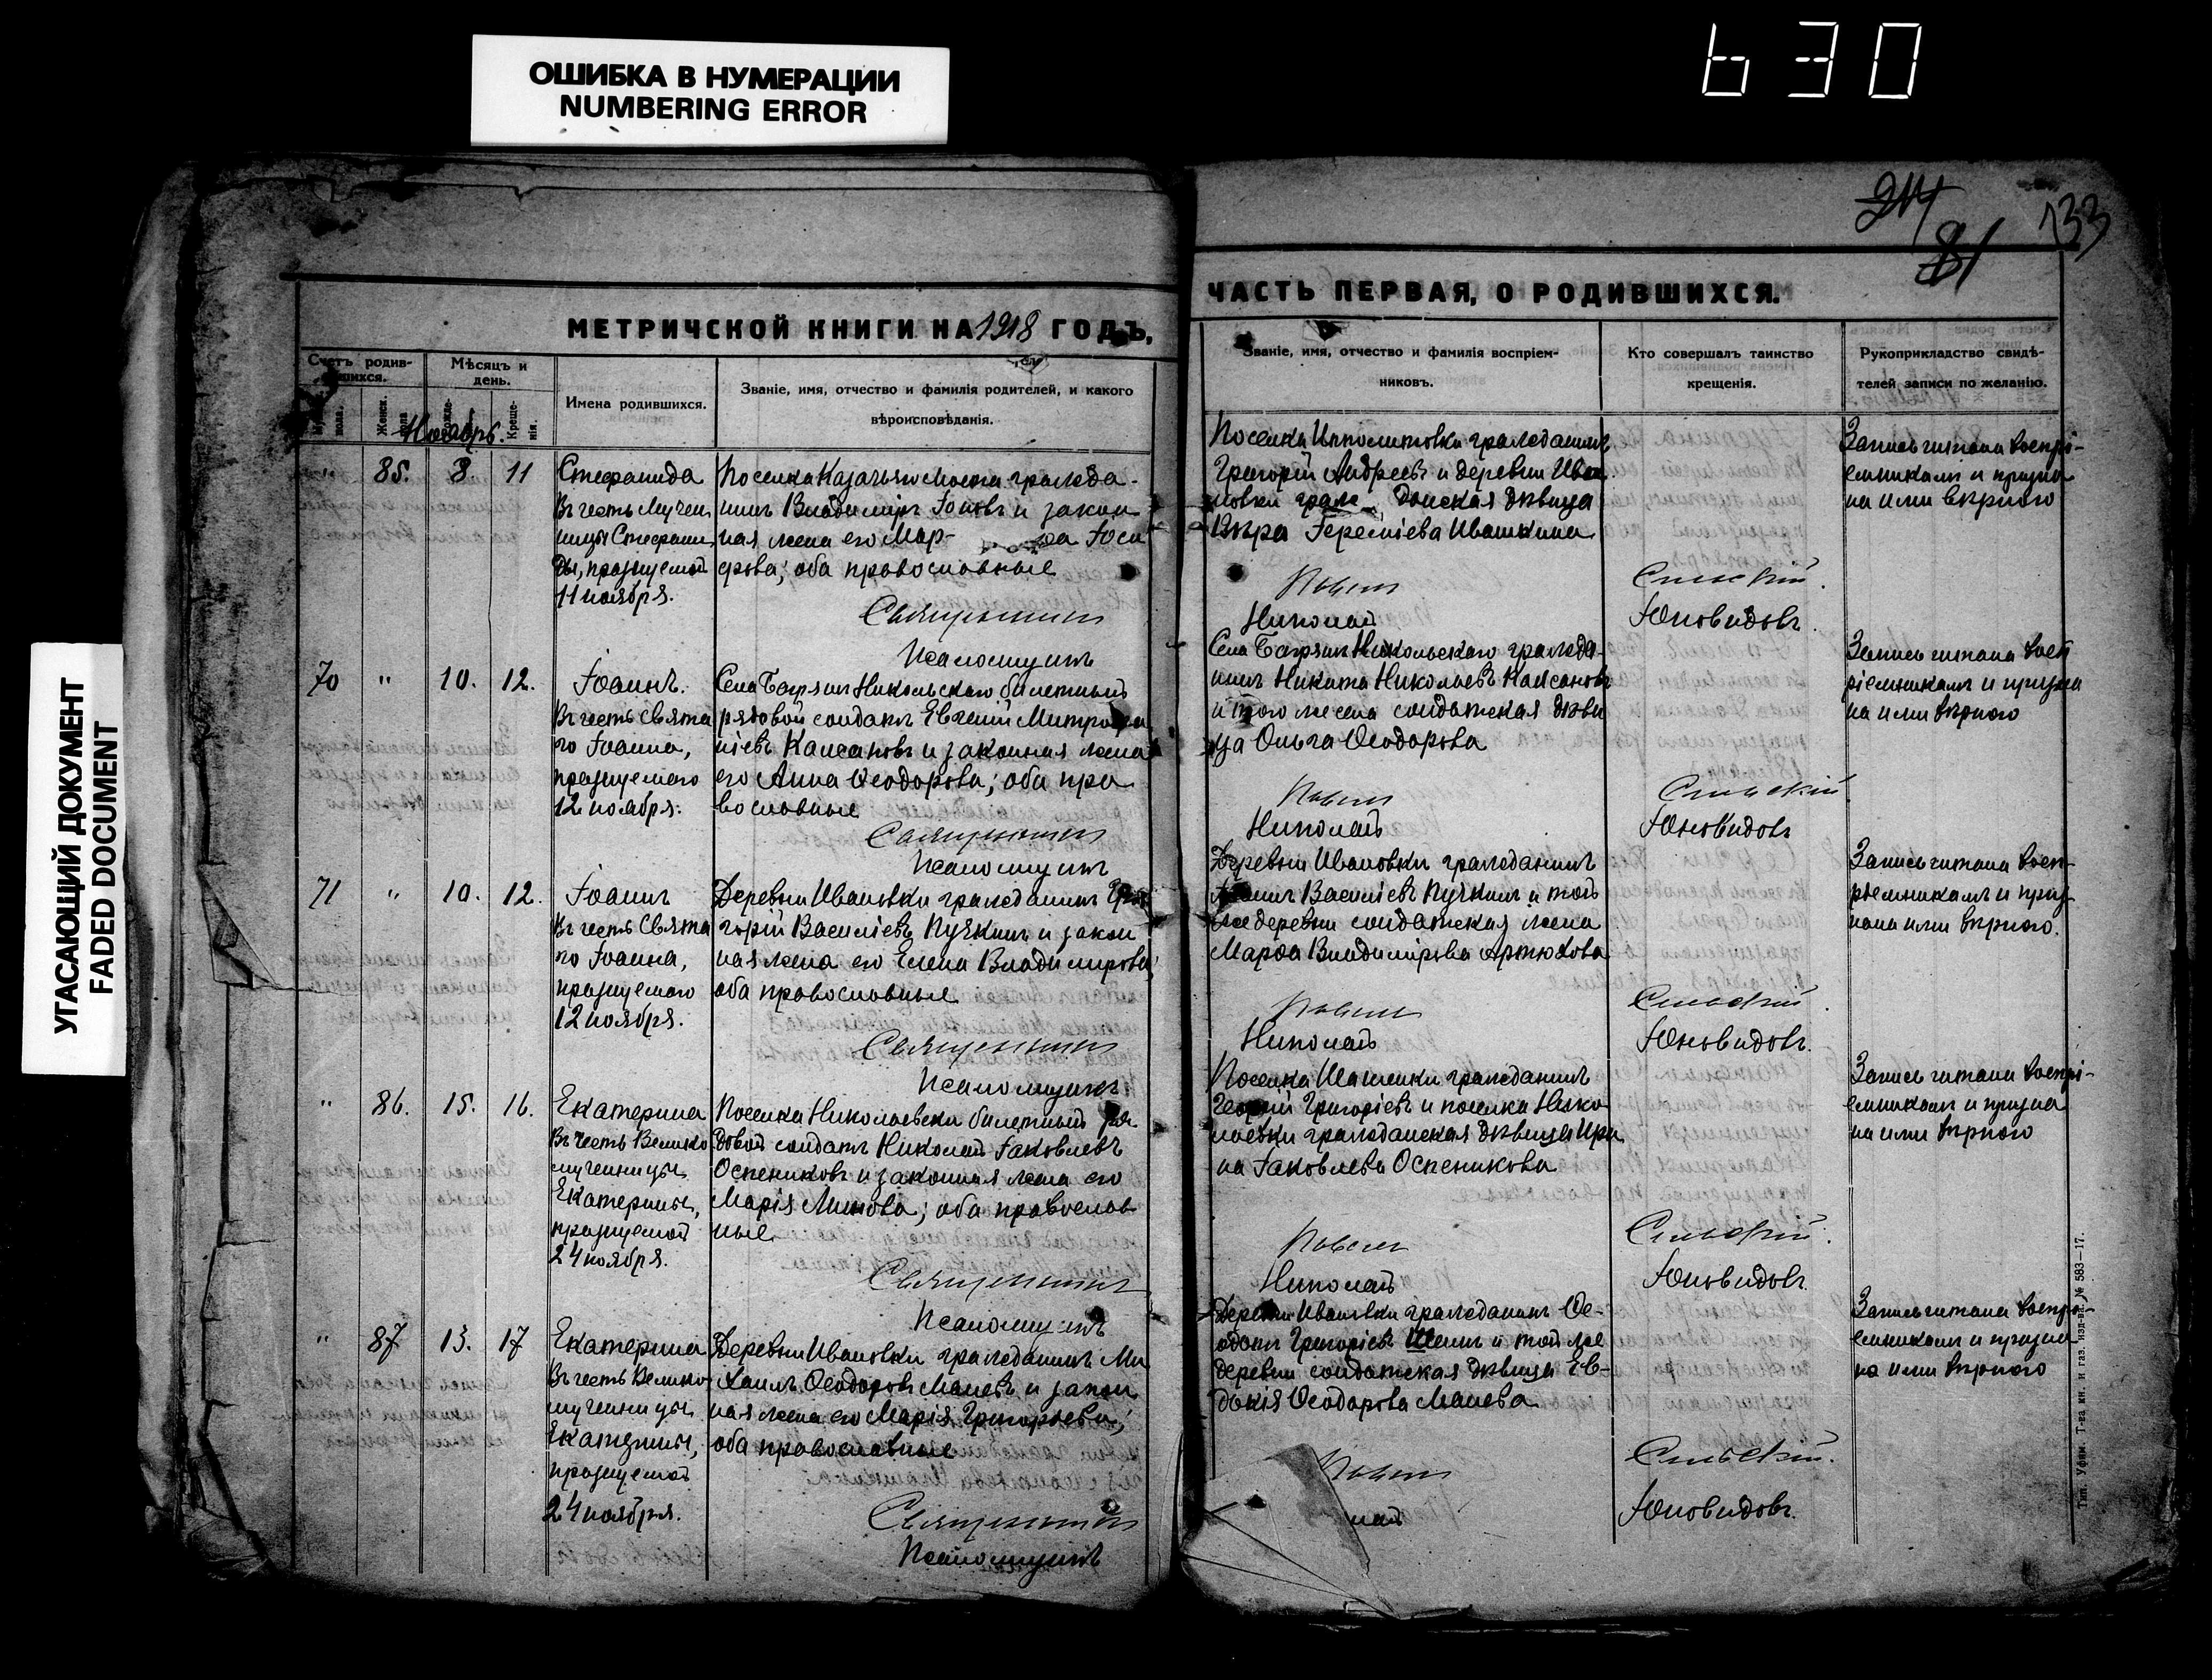 ОШИБКА В НУМЕРАЦИИ
NUMBERING ERROR
630
УГАСАЮЩИЙ ДОКУМЕНТ
FADED DOCUMENT
214
81
133
МЕТРИЧСКОЙ КНИГИ НА 1918 ГОДЪ,
ЧАСТЬ ПЕРВАЯ, О РОДИВШИХСЯ.
Счетъ родившихся.
Мѣсяцъ и день.
Имена родившихся.
Званіе, имя, отчество и фамилія родителей, и какого
вѣроисповѣданія.
Званіе, имя, отчество и фамилія воспріем-
никовъ.
Кто совершалъ таинство
крещенія.
Рукоприкладство свидѣ-
телей записи по желанію.
пола.
Женск.
пола
Креще-
нія.
Ноябрь.
" 85. 8. 11
Стефанида
Въ честь Мучени
ницы Стефани
ды, празднуемой
11 ноября.
Поселка Казачьяго Моста гражда-
нинъ Владиміръ Іововъ и закон
ная жена его Мар- ѳа Іоси
фова; оба православные
Священникъ
Псаломщикъ
Поселка Ипполитовки гражданинъ
Григорій Андреевъ и деревни Ива
новки граж данская дѣвица
Вѣра Іереміева Ивашкина
Павелъ
Николай
Сильскій.
Юновидовъ.
Запись читана воспрі-
емникамъ и призна
на ими вѣрною
70 " 10. 12.
Іоаннъ.
Въ честь Свята
го Іоанна,
празднуемаго
12 ноября.
Села Багряшъ Никольскаго билетный
рядовой солдатъ Евгеній Митрофа
ніевъ Канс[]новъ и законная жена
его Анна Ѳеодорова; оба пра
вославные
Священникъ
Псаломщикъ
Села Багряшъ Никольскаго гражда-
нинъ Никита Николаевъ
и того же села солдатская дѣви
ца Ольга Ѳеодорова
Павелъ
Николай
Сильскій
Юновидовъ
Запись читана восп
ріемникамъ и призна
на ими вѣрною
71 " 10. 12.
Іоаннъ
Въ честь Свята
го Іоанна,
празднуемаго
12 ноября.
Деревни Ивановки гражданинъ Гри
горій Василіевъ Пучкинъ и закон
ная жена его Елена Владимірова;
оба православные
Священникъ
Псаломщикъ
Деревни Ивановки гражданинъ
Василіевъ Пучкинъ и той
же деревни солдатская жена
Марѳа Владимірова Артюхова
Павелъ
Николай
Сильскій.
Юновидовъ.
Запись читана восп-
ріемникамъ и приз-
нана ими вѣрною.
" 86. 15. 16.
Екатерина
Въ честь Велико
мученицы
Екатерины,
празднуемой
24 ноября.
Поселка Николаевки билетный ря
довой солдатъ Николай Іаковлевъ
Оспенниковъ и законная жена его
Марія Линова; оба православ
ные
Священникъ
Псаломщикъ
Поселка гражданинъ
Георгій Григоріевъ и поселка Нико
лаевки гражданская дѣвица Ири
на Іаковлева Оспенникова
Павелъ
Николай
Сильскій.
Юновидовъ.
Запись читана воспрі-
емникамъ и призна
на ими вѣрною
" 87 13. 17
Екатерина
Въ честь Велико
мученицы
Екатерины,
празднуемой
24 ноября.
Деревни Ивановки гражданинъ Ми
хаилъ Ѳеодоровъ Маневъ и закон
ная жена его Марія Григорьева;
оба православные
Священникъ
Псаломщикъ
Деревни Ивановки гражданинъ Ѳе-
одотъ Григоріевъ и той же
деревни солдатская дѣвица Ев-
докія Ѳеодорова Манева
Павелъ
лай
Сильскій.
Юновидовъ.
Запись читана воспрі-
емникамъ и призна
на ими вѣрною
Тип. Уфим. Т-ва кн. и газ. изд-ва. № 583—17.